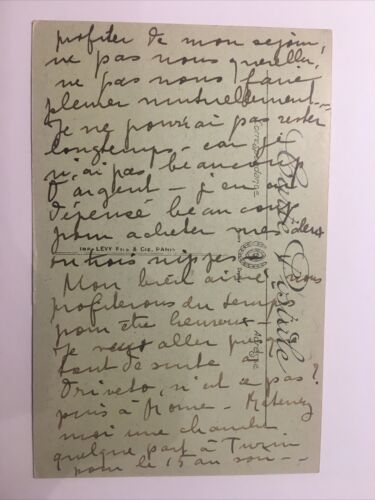 profiter de mon séjour,
ne pas nous quereller,
ne pas nous faire
pleurer mutuellement --
Je ne pourrai pas rester
longtemps - car je
n'ai pas beaucoup
d'argent - j'en ai
dépensé beaucoup
pour acheter mes deux
ou trois nippes
Mon bien aimé nous
profiterons du temps
pour être heureux -
Je veux aller
tout de suite à
n'est ce pas?
puis à Rome - Retenez
moi une chambre
quelque part à Turin
pour le 15 au soir --
Imp. LÉVY Fils & Cie, PARIS
Carte Postale
Correspondance
Adresse